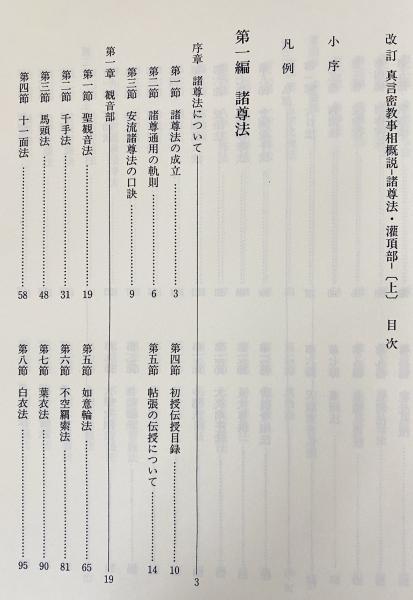 改訂 真言密教事相概説-諸尊法・灌頂部-〔上〕 目次
小序
凡例
第一編 諸尊法
序章 諸尊法について 3
第一節 諸尊法の成立 3
第二節 諸尊通用の軌則 6
第三節 安流諸尊法の口訣 9
第四節 初授伝授目録 10
第五節 帖張の伝授について 14
第一章 観音部 19
第一節 聖観音法 19
第二節 千手法 31
第三節 馬頭法 48
第四節 十一面法 58
第五節 如意輪法 65
第六節 不空羂索法 81
第七節 葉衣法 90
第八節 白衣法 95